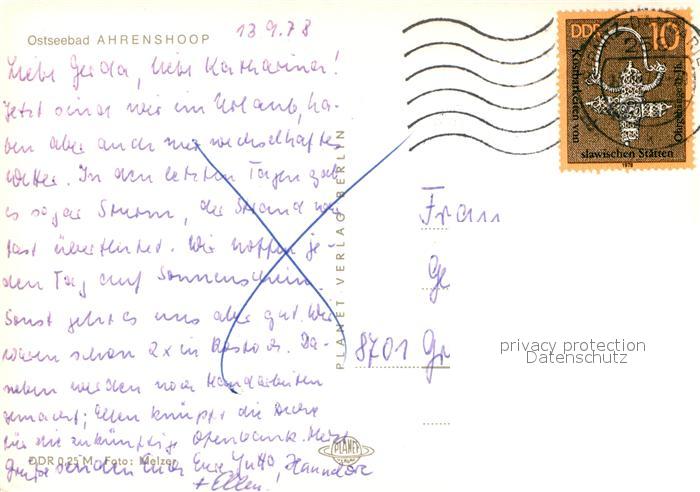 Ostseebad AHRENSHOOP 13.9.78
Liebe Gerda, liebe Katharina!
Jetzt sind wir im Urlaub, ha-
ben aber auch nur wechselhaftes
Wetter. In den letzten Tagen gab
es sogar Sturm, der Strand war
fast überflutet. Wir hoffen je-
den Tag auf Sonnenschein.
Sonst geht es uns aber gut. Wir
waren schon 2x in Rostock. Da-
neben werden noch Handarbeiten
gemacht; Ellen knüpft die Decke
für die zukünftige Ofenbank. Herzl.
Grüße senden Euch Eure Jutta, Hannelore
+ Ellen.
DDR 0,25 M Foto: Melzer
PLANET VERLAG BERLIN
PLANET
VERLAG
DDR 10
Kostbarkeiten von
slawischen Stätten
Ohrgehänge 10. Jh.
1978
Frau
Ge
8701 Gr
privacy protection
Datenschutz